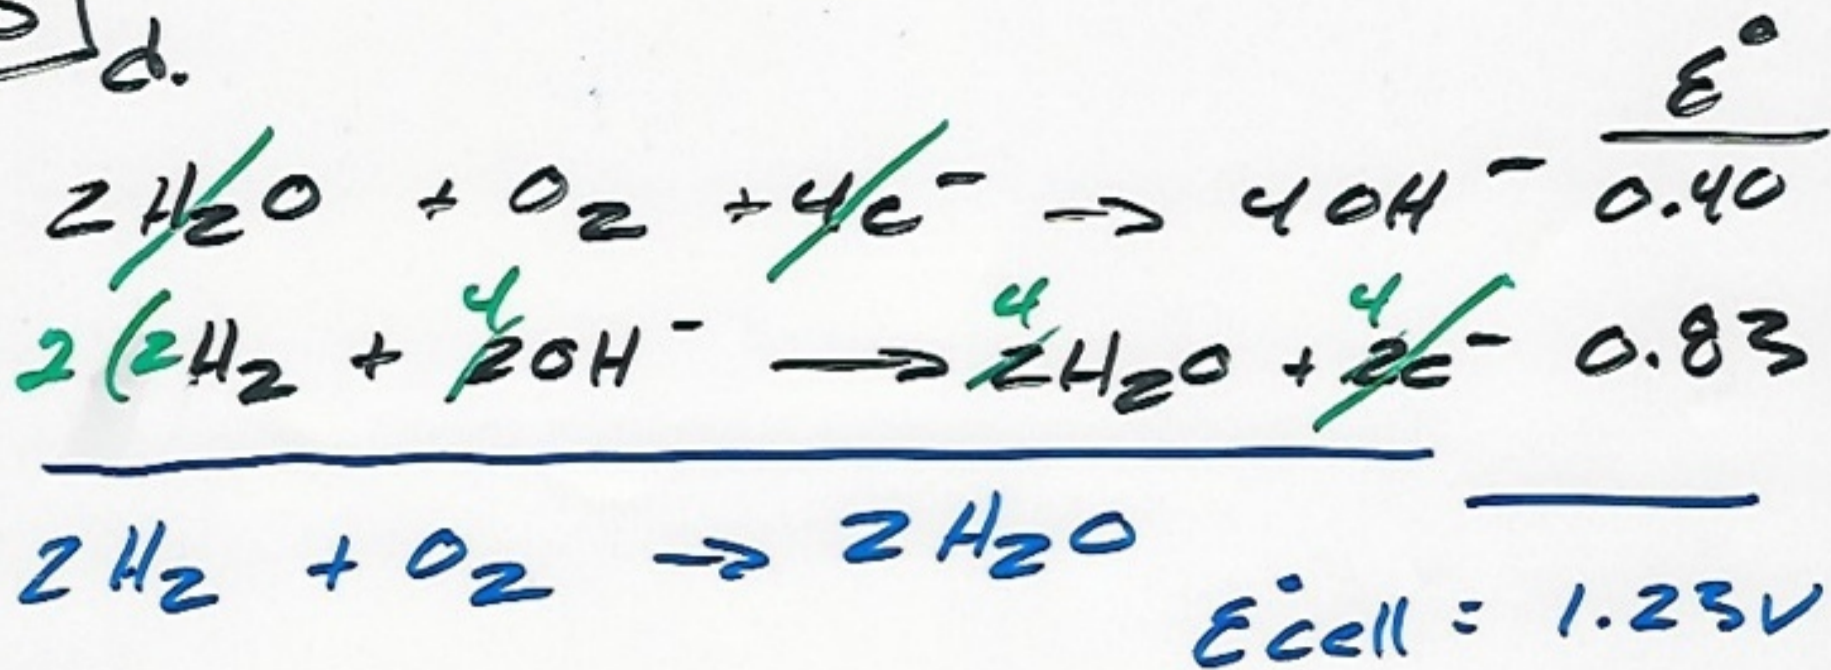 d.
ε°
2H₂O + O₂ + 4e⁻ → 4OH⁻ 0.40
2(2H₂ + 4 2OH⁻ → 4 2H₂O + 4 2e⁻ 0.83
2H₂ + O₂ → 2H₂O
ε°cell = 1.23V